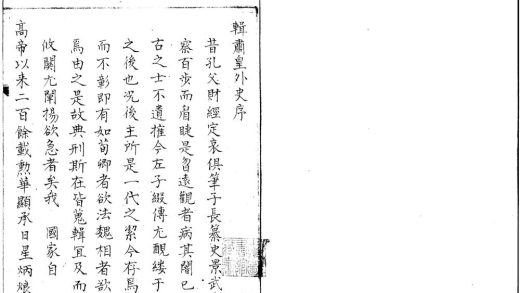 輯肅皇外史序
昔孔父財經定哀俱筆子長纂史景武
察百步而眉睫是眢遠觀者病其闇已
古之士不遺摧今左子綴傳尤覼縷于
之後也况後主所是一代之絜今存焉
而不彰即有如荀卿者欲法魏相者欲
焉由之是故典刑斯在皆蒐輯宜及而
攸關尤闡揚欲急者矣我 國家自
高帝以来二百餘載勲華顯承日星炳烺